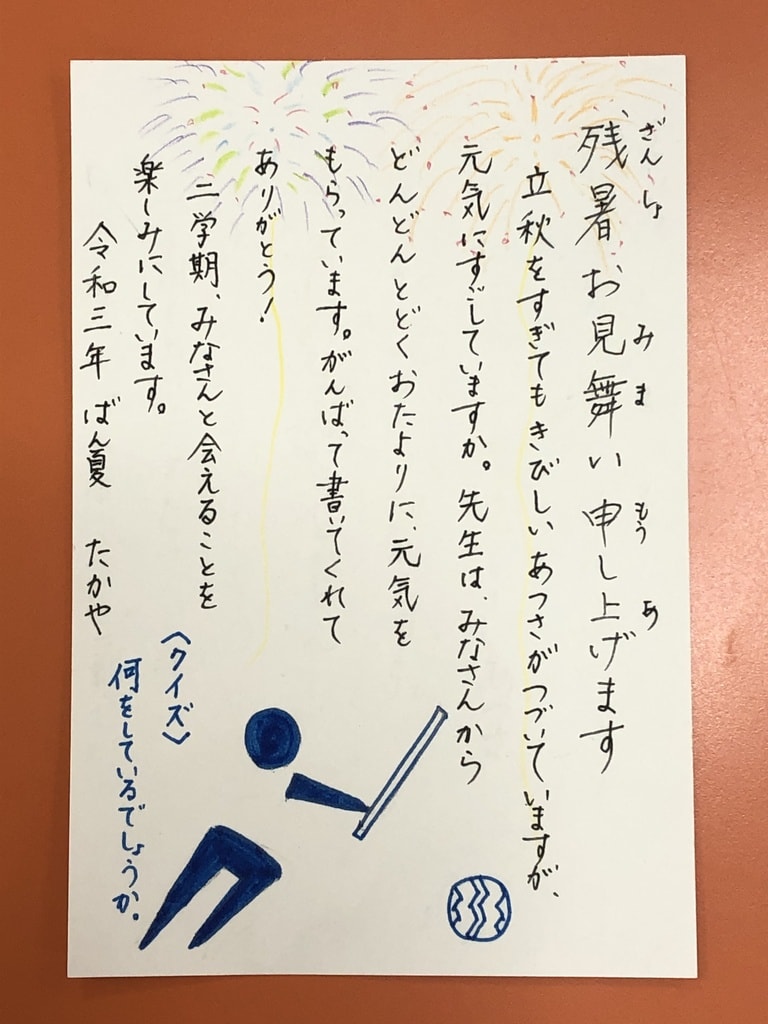 残暑お見舞い申し上げます
ざんしょ
みま
もう
あ
立秋をすぎてもきびしいあつさがつづいていますが、
元気にすごしていますか。先生は、みなさんから
どんどんとどくおたよりに、元気を
もらっています。がんばって書いてくれて
ありがとう！
二学期、みなさんと会えることを
楽しみにしています。
令和三年 ばん夏 たかや
〈クイズ〉
何をしているでしょうか。